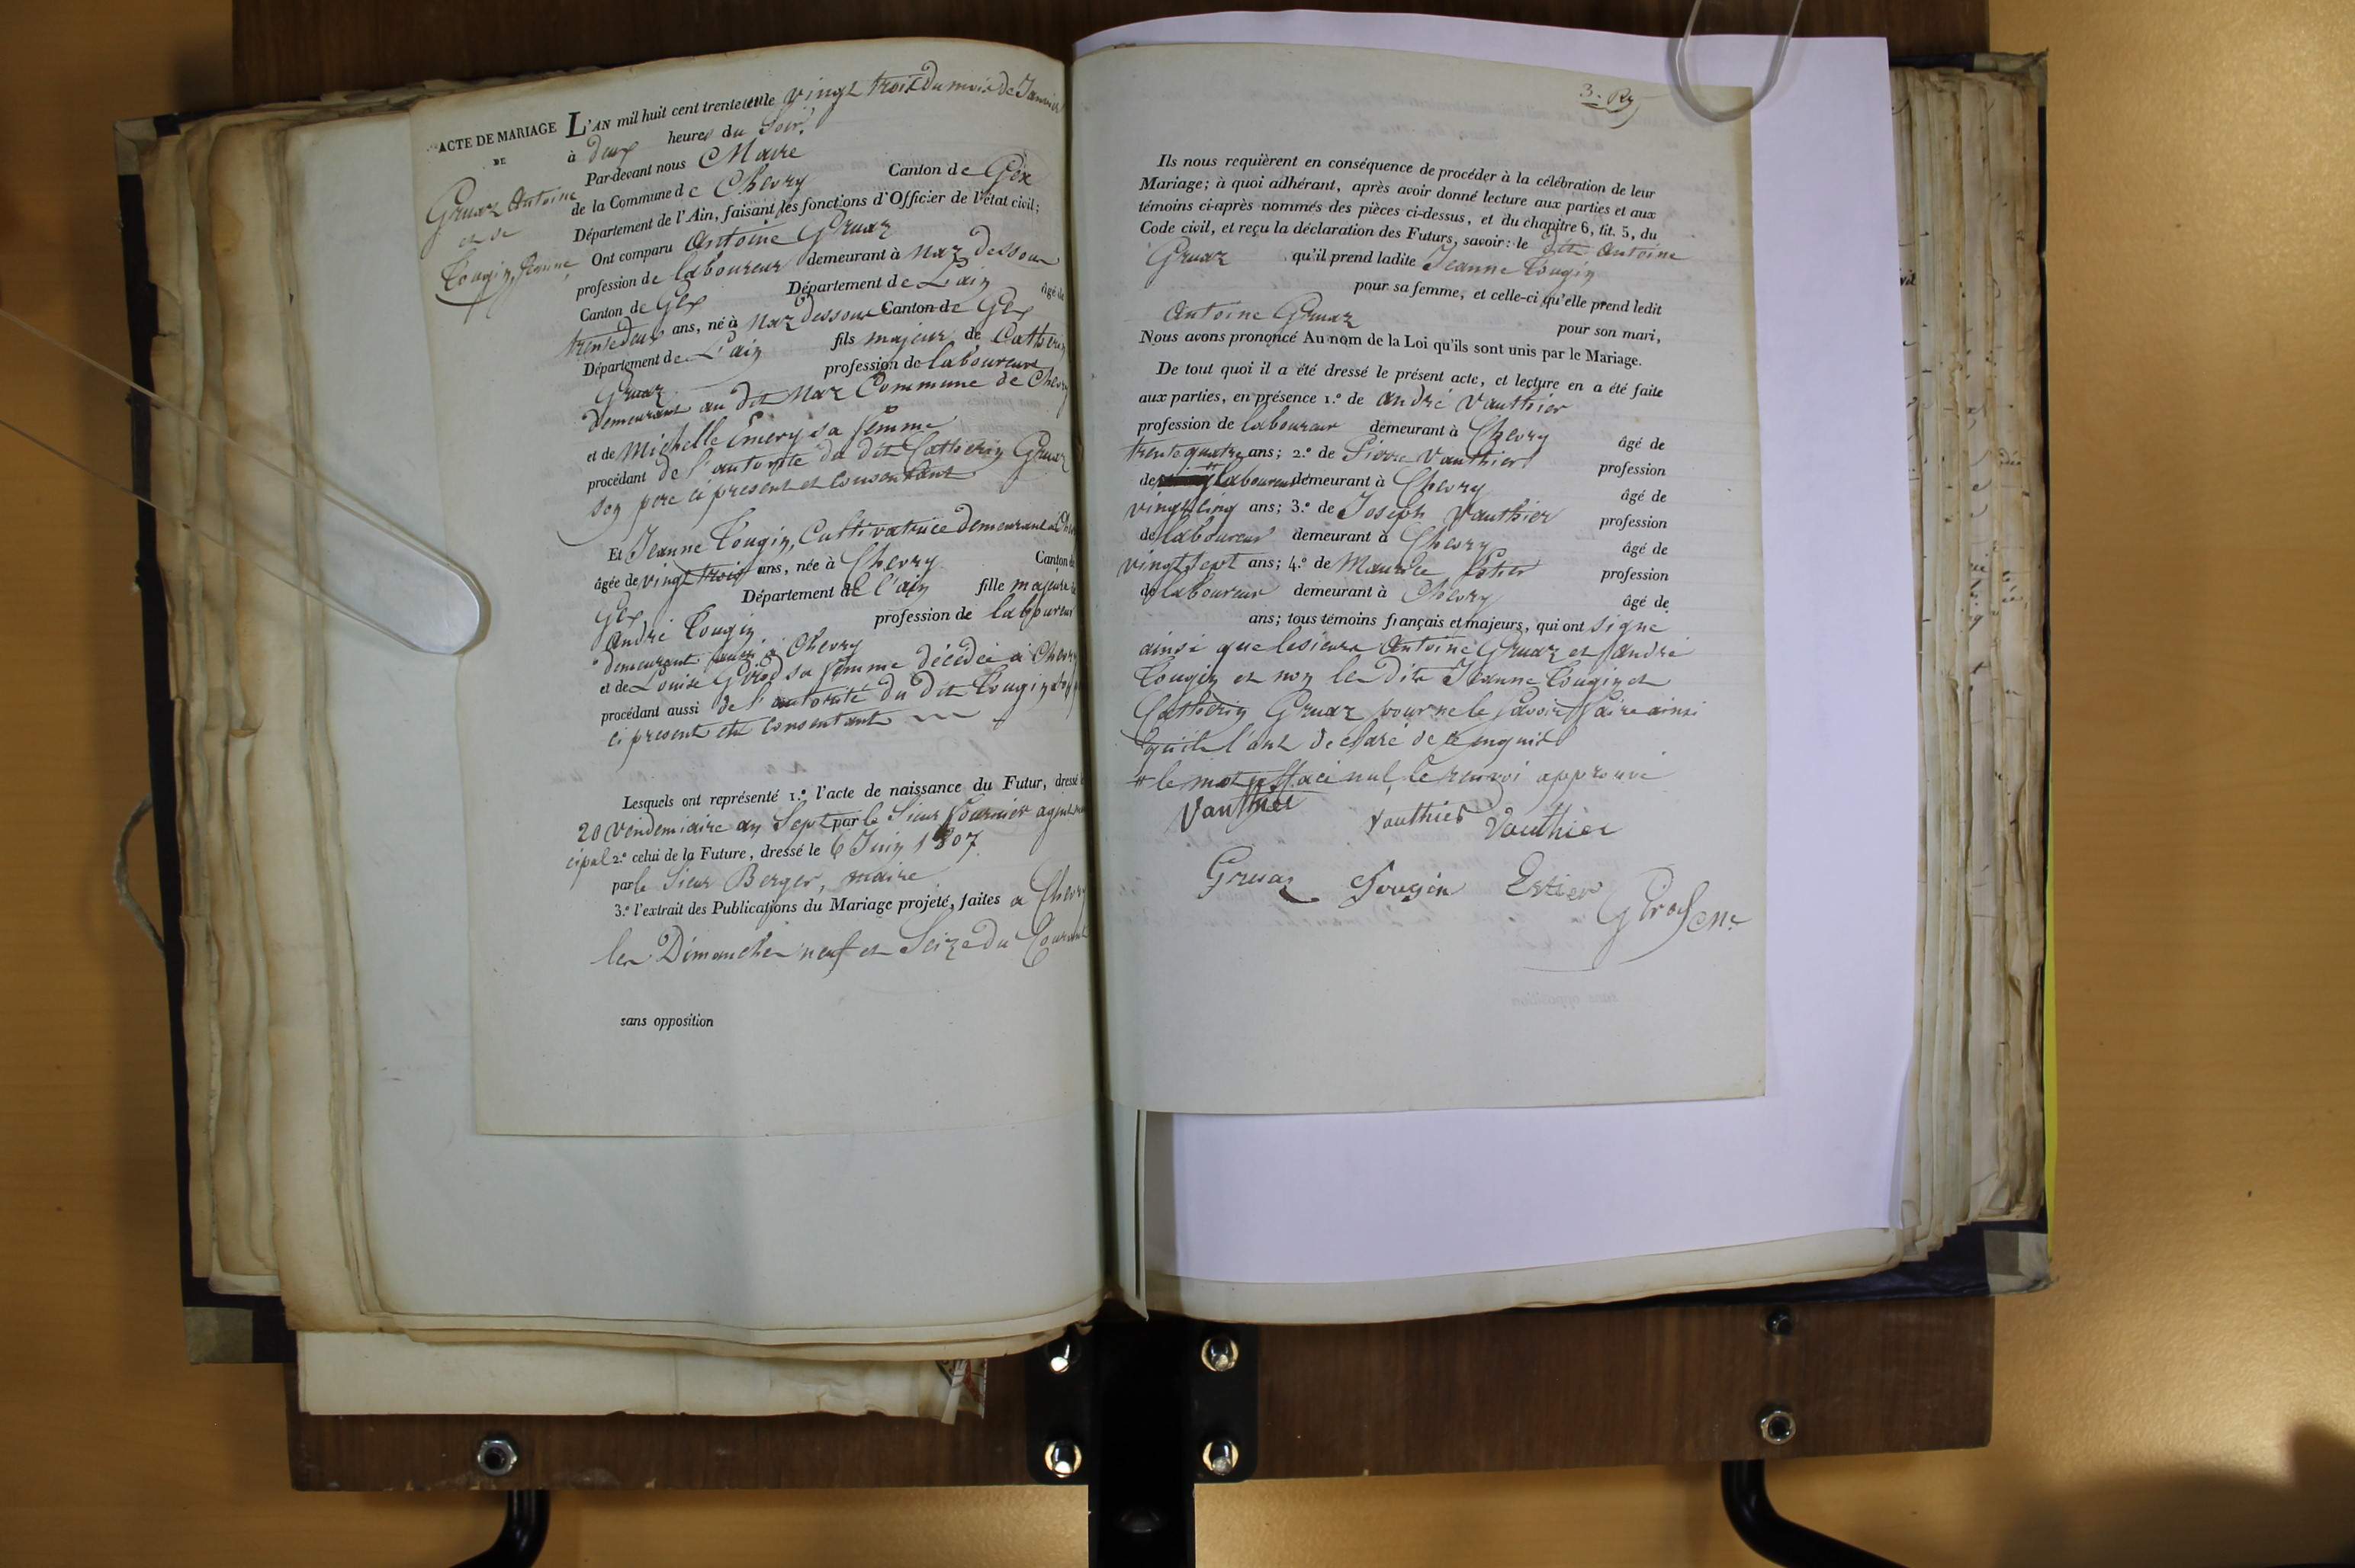 ACTE DE MARIAGE L'AN mil huit cent trente et un le vingt trois du mois de Janvier
DE
à deux heures du Soir,
Par-devant nous Maire
de la Commune de Chevry Canton de Gex
Département de l'Ain, faisant les fonctions d'Officier de l'état civil;
Gruaz Antoine
et de
Tougin, Jeanne
Ont comparu Antoine Gruaz
profession de laboureur demeurant à Naz dessous
Canton de Gex Département de L'ain âgé de
trente deux ans, né à Naz dessous Canton de Gex
Département de L'ain fils majeur de Catherin
Gruaz profession de laboureur
demeurant au dit Naz Commune de Chevry
et de Michelle Emery sa femme
procédant de l'autorité du dit Catherin Gruaz
son père ci présent et consentant
Et Jeanne Tougin, Cultivatrice demeurant à
âgée de vingt trois ans, née à Chevry Canton de
Gex Département de l'ain fille majeure de
André Tougin profession de laboureur
demeurant aussi à Chevry
et de Louise Girod sa femme décédée à Chevry
procédant aussi de l'autorité du dit Tougin
ci présent et consentant
Lesquels ont représenté 1.º l'acte de naissance du Futur, dressé le
20 vendemiaire an Sept par le Sieur Fournier agent muni
cipal 2.º celui de la Future, dressé le 6 Juin 1807
par le Sieur Berger, maire
3.º l'extrait des Publications du Mariage projeté, faites à Chevry
les Dimanches neuf et Seize du Courant
sans opposition
3. Ry
Ils nous requièrent en conséquence de procéder à la célébration de leur
Mariage; à quoi adhérant, après avoir donné lecture aux parties et aux
témoins ci-après nommés des pièces ci-dessus, et du chapitre 6, tit. 5, du
Code civil, et reçu la déclaration des Futurs, savoir: le dit Antoine
Gruaz qu'il prend ladite Jeanne Tougin
pour sa femme, et celle-ci qu'elle prend ledit
Antoine Gruaz pour son mari,
Nous avons prononcé Au nom de la Loi qu'ils sont unis par le Mariage.
De tout quoi il a été dressé le présent acte, et lecture en a été faite
aux parties, en présence 1.º de André Vauthier
profession de laboureur demeurant à Chevry âgé de
trente quatre ans; 2.º de Pierre Vauthier profession
de laboureur demeurant à Chevry âgé de
vingt cinq ans; 3.º de Joseph Vauthier profession
de laboureur demeurant à Chevry âgé de
vingt sept ans; 4.º de Maurice profession
de laboureur demeurant à Chevry âgé de
ans; tous témoins français et majeurs, qui ont signé
ainsi que les sieurs Antoine Gruaz et André
Tougin et non les dits Jeanne Tougin et
Catherin Gruaz pour ne le savoir faire ainsi
qu'ils l'ont déclaré de ce enquis
# le mot effacé nul, le renvoi approuvé
Vauthier
Vauthier Vauthier
Gruaz Tougin Girod